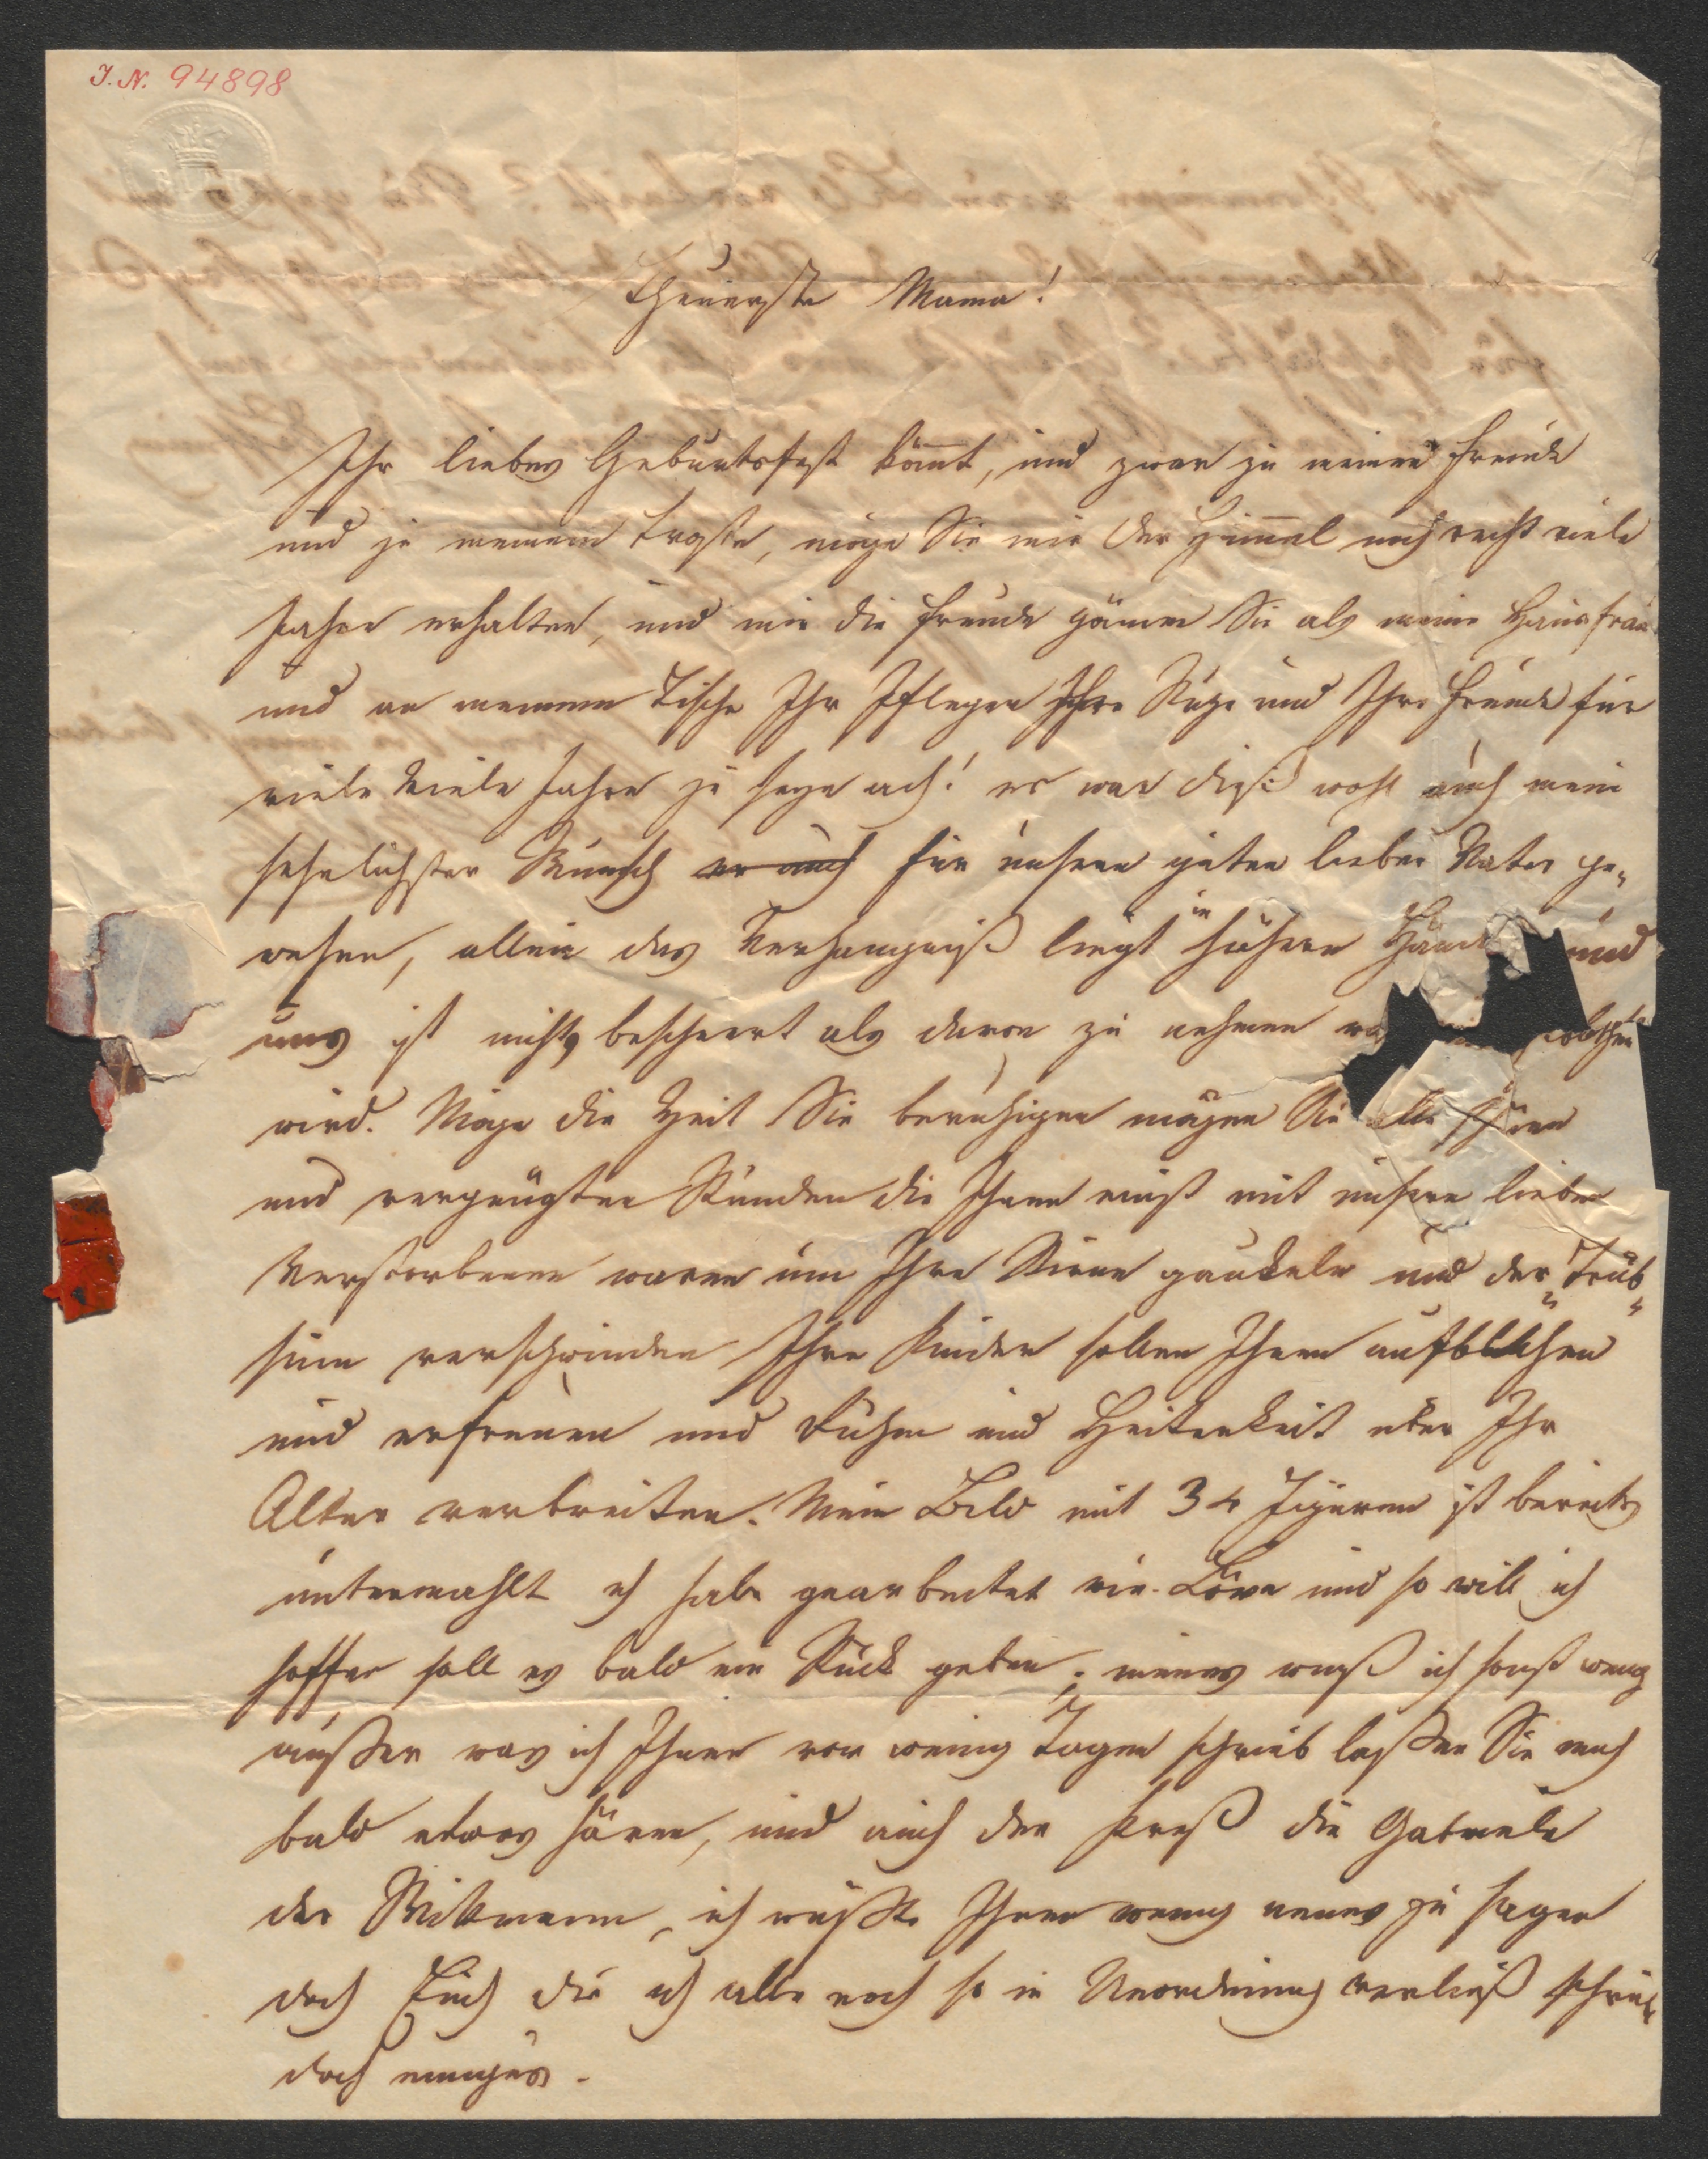 J. N. 94898
Theuerste Mama!
Ihr liebes Geburtsfest kömt, und zwar zu meiner Freude
und zu meinem Troste, möge Sie mir der Himmel noch recht viele
Jahre erhalten, und mir die Freude gönnen Sie als meine Hausfrau
und an meinem Tische Ihr Pflegen Ihre Ruhe und Ihre Freude für
viele viele Jahre zu seyn ach! es war dieß wohl auch mein
sehnlichster Wunsch er auch für unsern guten lieben Vater ge-
wesen, allein das Verhängniß liegt in höhern und
uns ist nichts bescheert als davon zu nehmen
wird. Möge die Zeit Sie beruhigen mögen Sie alle schönen
und vergnügten Stunden die Ihnen einst mit unsern lieben
Verstorbenen waren um Ihre Stirne gaukeln und der Trüb-
sinn verschwinden Ihre Kinder sollen Ihnen aufblühen
und erfreuen und Ruhe und Heiterkeit über Ihr
Alter verbreiten. Mein Bild mit 34 Figuren ist bereits
untermahlt ich habe gearbeitet wie Löwe und so will ich
hoffen soll es bald ein Stück geben, neues weiß ich sonst wenig
außer was ich Ihnen vor wenig Tagen schrieb laßen Sie mich
bald etwas hören, und auch der die Gabriele
der Wittmann, ich wüßte Ihnen wenig neues zu sagen
doch Euch die ich alle noch so in Unordnung verließ
doch einiges.